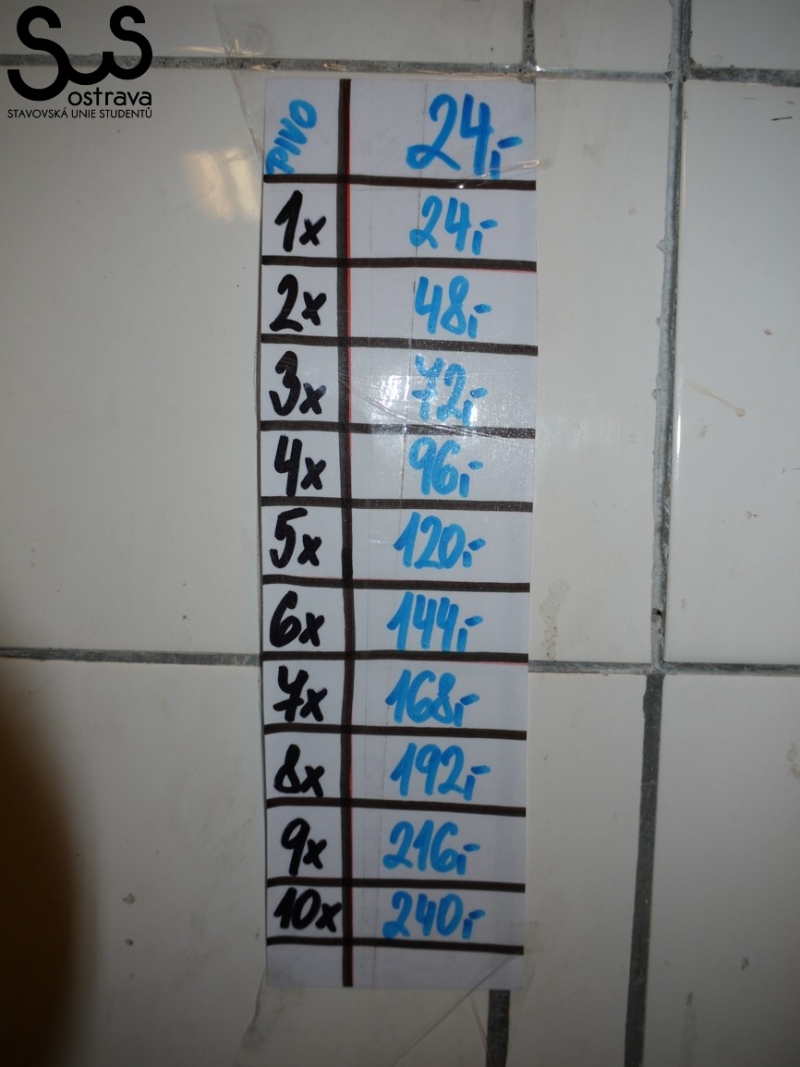 SUS
ostrava
STAVOVSKÁ UNIE STUDENTŮ
PIVO 24,-
1x 24,-
2x 48,-
3x 72,-
4x 96,-
5x 120,-
6x 144,-
7x 168,-
8x 192,-
9x 216,-
10x 240,-